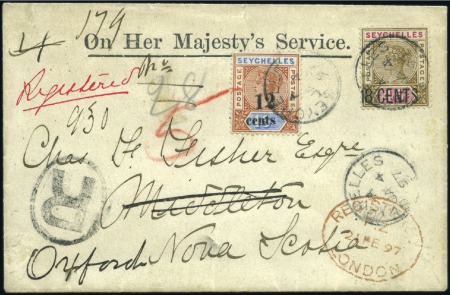 179
On Her Majesty's Service.
Registered
930
28
SEYCHELLES
POSTAGE
POSTAGE
12
cents
SEYCHELLES
POSTAGE
POSTAGE
18 CENTS
Chas. F. Fisher Esqre
Middleton
Oxford Nova Scotia
R
SEYCHELLES
97
REGISTERED
97
LONDON